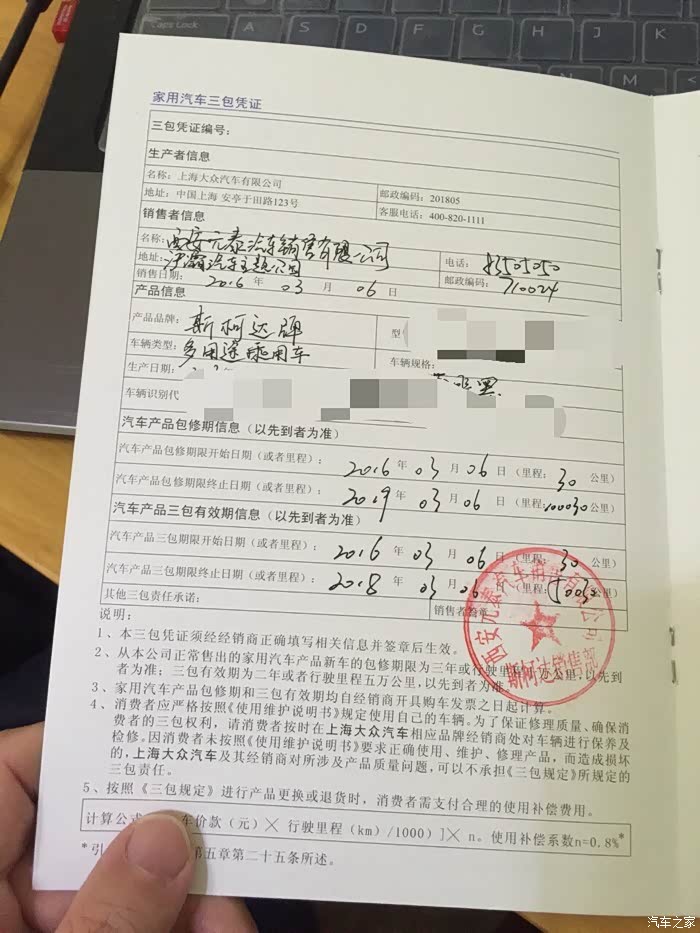 Caps Lock
A
S
D
F
G
H
J
K
家用汽车三包凭证
三包凭证编号：
生产者信息
名称：上海大众汽车有限公司
邮政编码：201805
地址：中国上海 安亭于田路123号
客服电话：400-820-1111
销售者信息
名称：西安元泰汽车销售有限公司
电话：83505050
地址：浐灞汽车主题公园
邮政编码：710024
销售日期：2016 年 03 月 06 日
产品信息
产品品牌：斯柯达牌
型
车辆类型：多用途乘用车
车辆规格：
生产日期：
车辆识别代
汽车产品包修期信息（以先到者为准）
汽车产品包修期限开始日期（或者里程）：2016 年 03 月 06 日（里程：30 公里）
汽车产品包修期限终止日期（或者里程）：2019 年 03 月 06 日（里程：100030 公里）
汽车产品三包有效期信息（以先到者为准）
汽车产品三包期限开始日期（或者里程）：2016 年 03 月 06 日（里程：30 公里）
汽车产品三包期限终止日期（或者里程）：2018 年 03 月 06 日（里程：50030 公里）
其他三包责任承诺：
销售者签章
西安元泰汽车销售有限公司
斯柯达销售部
说明：
1、本三包凭证须经经销商正确填写相关信息并签章后生效。
2、从本公司正常售出的家用汽车产品新车的包修期限为三年或行驶里程十万公里，以先到
者为准；三包有效期为二年或者行驶里程五万公里，以先到者为准。
3、家用汽车产品包修期和三包有效期均自经销商开具购车发票之日起计算。
4、消费者应严格按照《使用维护说明书》规定使用自己的车辆。为了保证修理质量、确保消
费者的三包权利，请消费者按时在上海大众汽车相应品牌经销商处对车辆进行保养及
检修。因消费者未按照《使用维护说明书》要求正确使用、维护、修理产品，而造成损坏
的，上海大众汽车及其经销商对所涉及产品质量问题，可以不承担《三包规定》所规定的
三包责任。
5、按照《三包规定》进行产品更换或退货时，消费者需支付合理的使用补偿费用。
计算公式 车价款（元）× 行驶里程（km）/1000）]× n。使用补偿系数n=0.8%*
*引 第五章第二十五条所述。
汽车之家